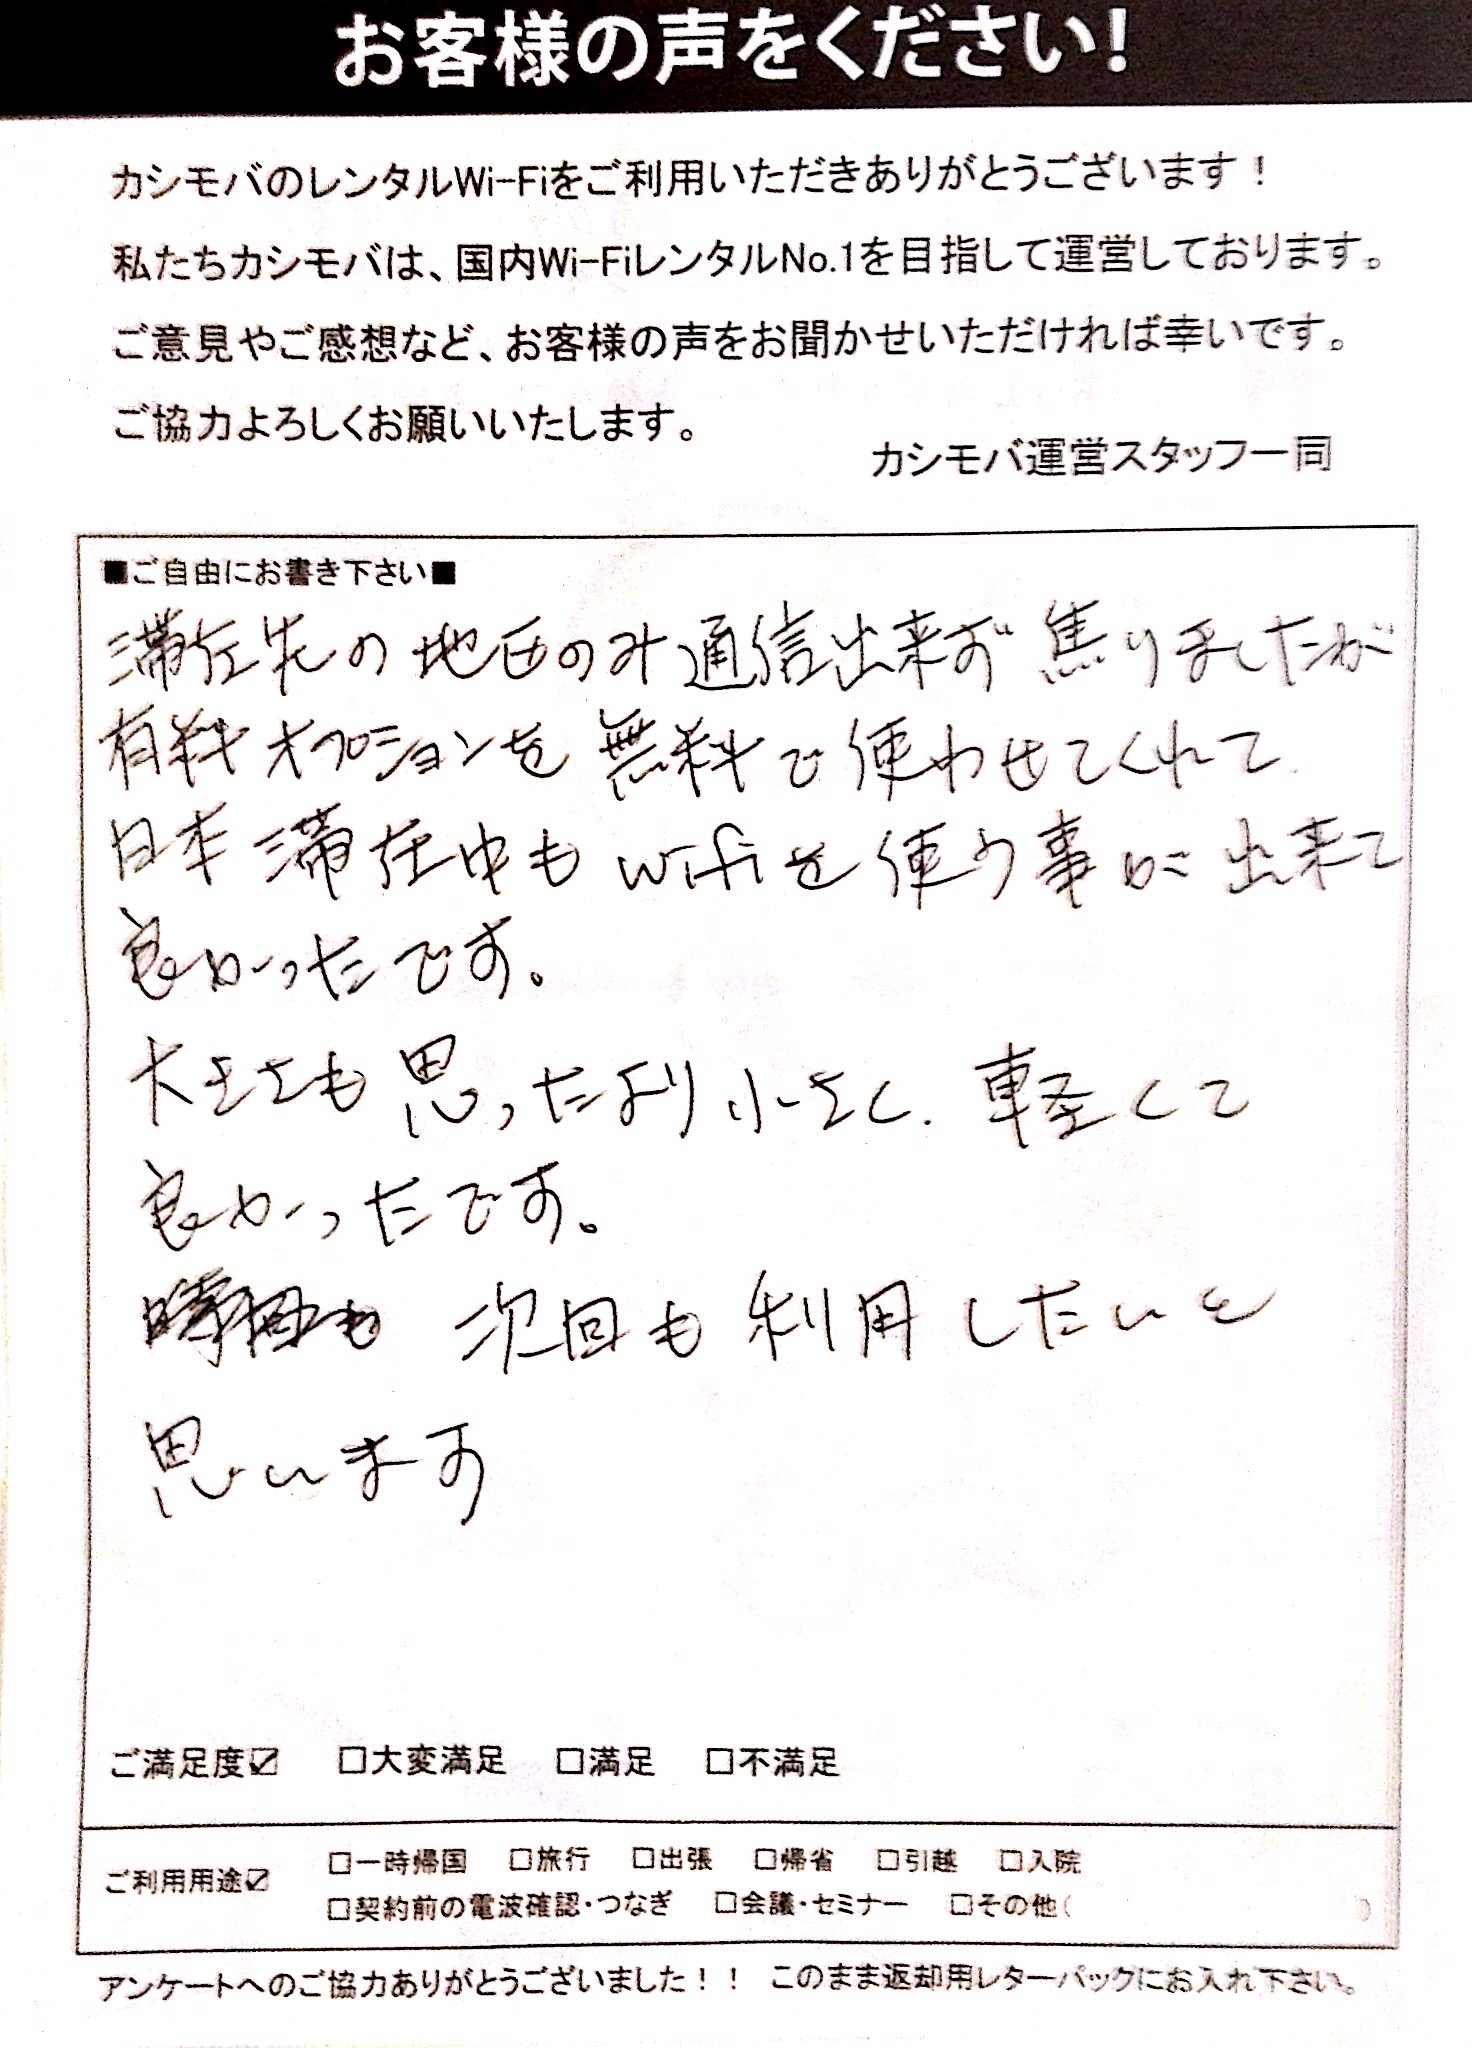 お客様の声をください!
カシモバのレンタルWi-Fiをご利用いただきありがとうございます!
私たちカシモバは、国内Wi-FiレンタルNo.1を目指して運営しております。
ご意見やご感想など、お客様の声をお聞かせいただければ幸いです。
ご協力よろしくお願いいたします。
カシモバ運営スタッフ一同
■ご自由にお書き下さい■
滞在先の地区のみ通信出来ず焦りましたが
有料オプションを無料で使わせてくれて
日本滞在中もwifiを使う事が出来て
良かったです。
大きさも思ったより小さく、軽くて
良かったです。
次回も利用したいと
思います
ご満足度☑ □大変満足 □満足 □不満足
ご利用用途☑ □一時帰国 □旅行 □出張 □帰省 □引越 □入院
□契約前の電波確認・つなぎ □会議・セミナー □その他( )
アンケートへのご協力ありがとうございました!! このまま返却用レターパックにお入れ下さい。